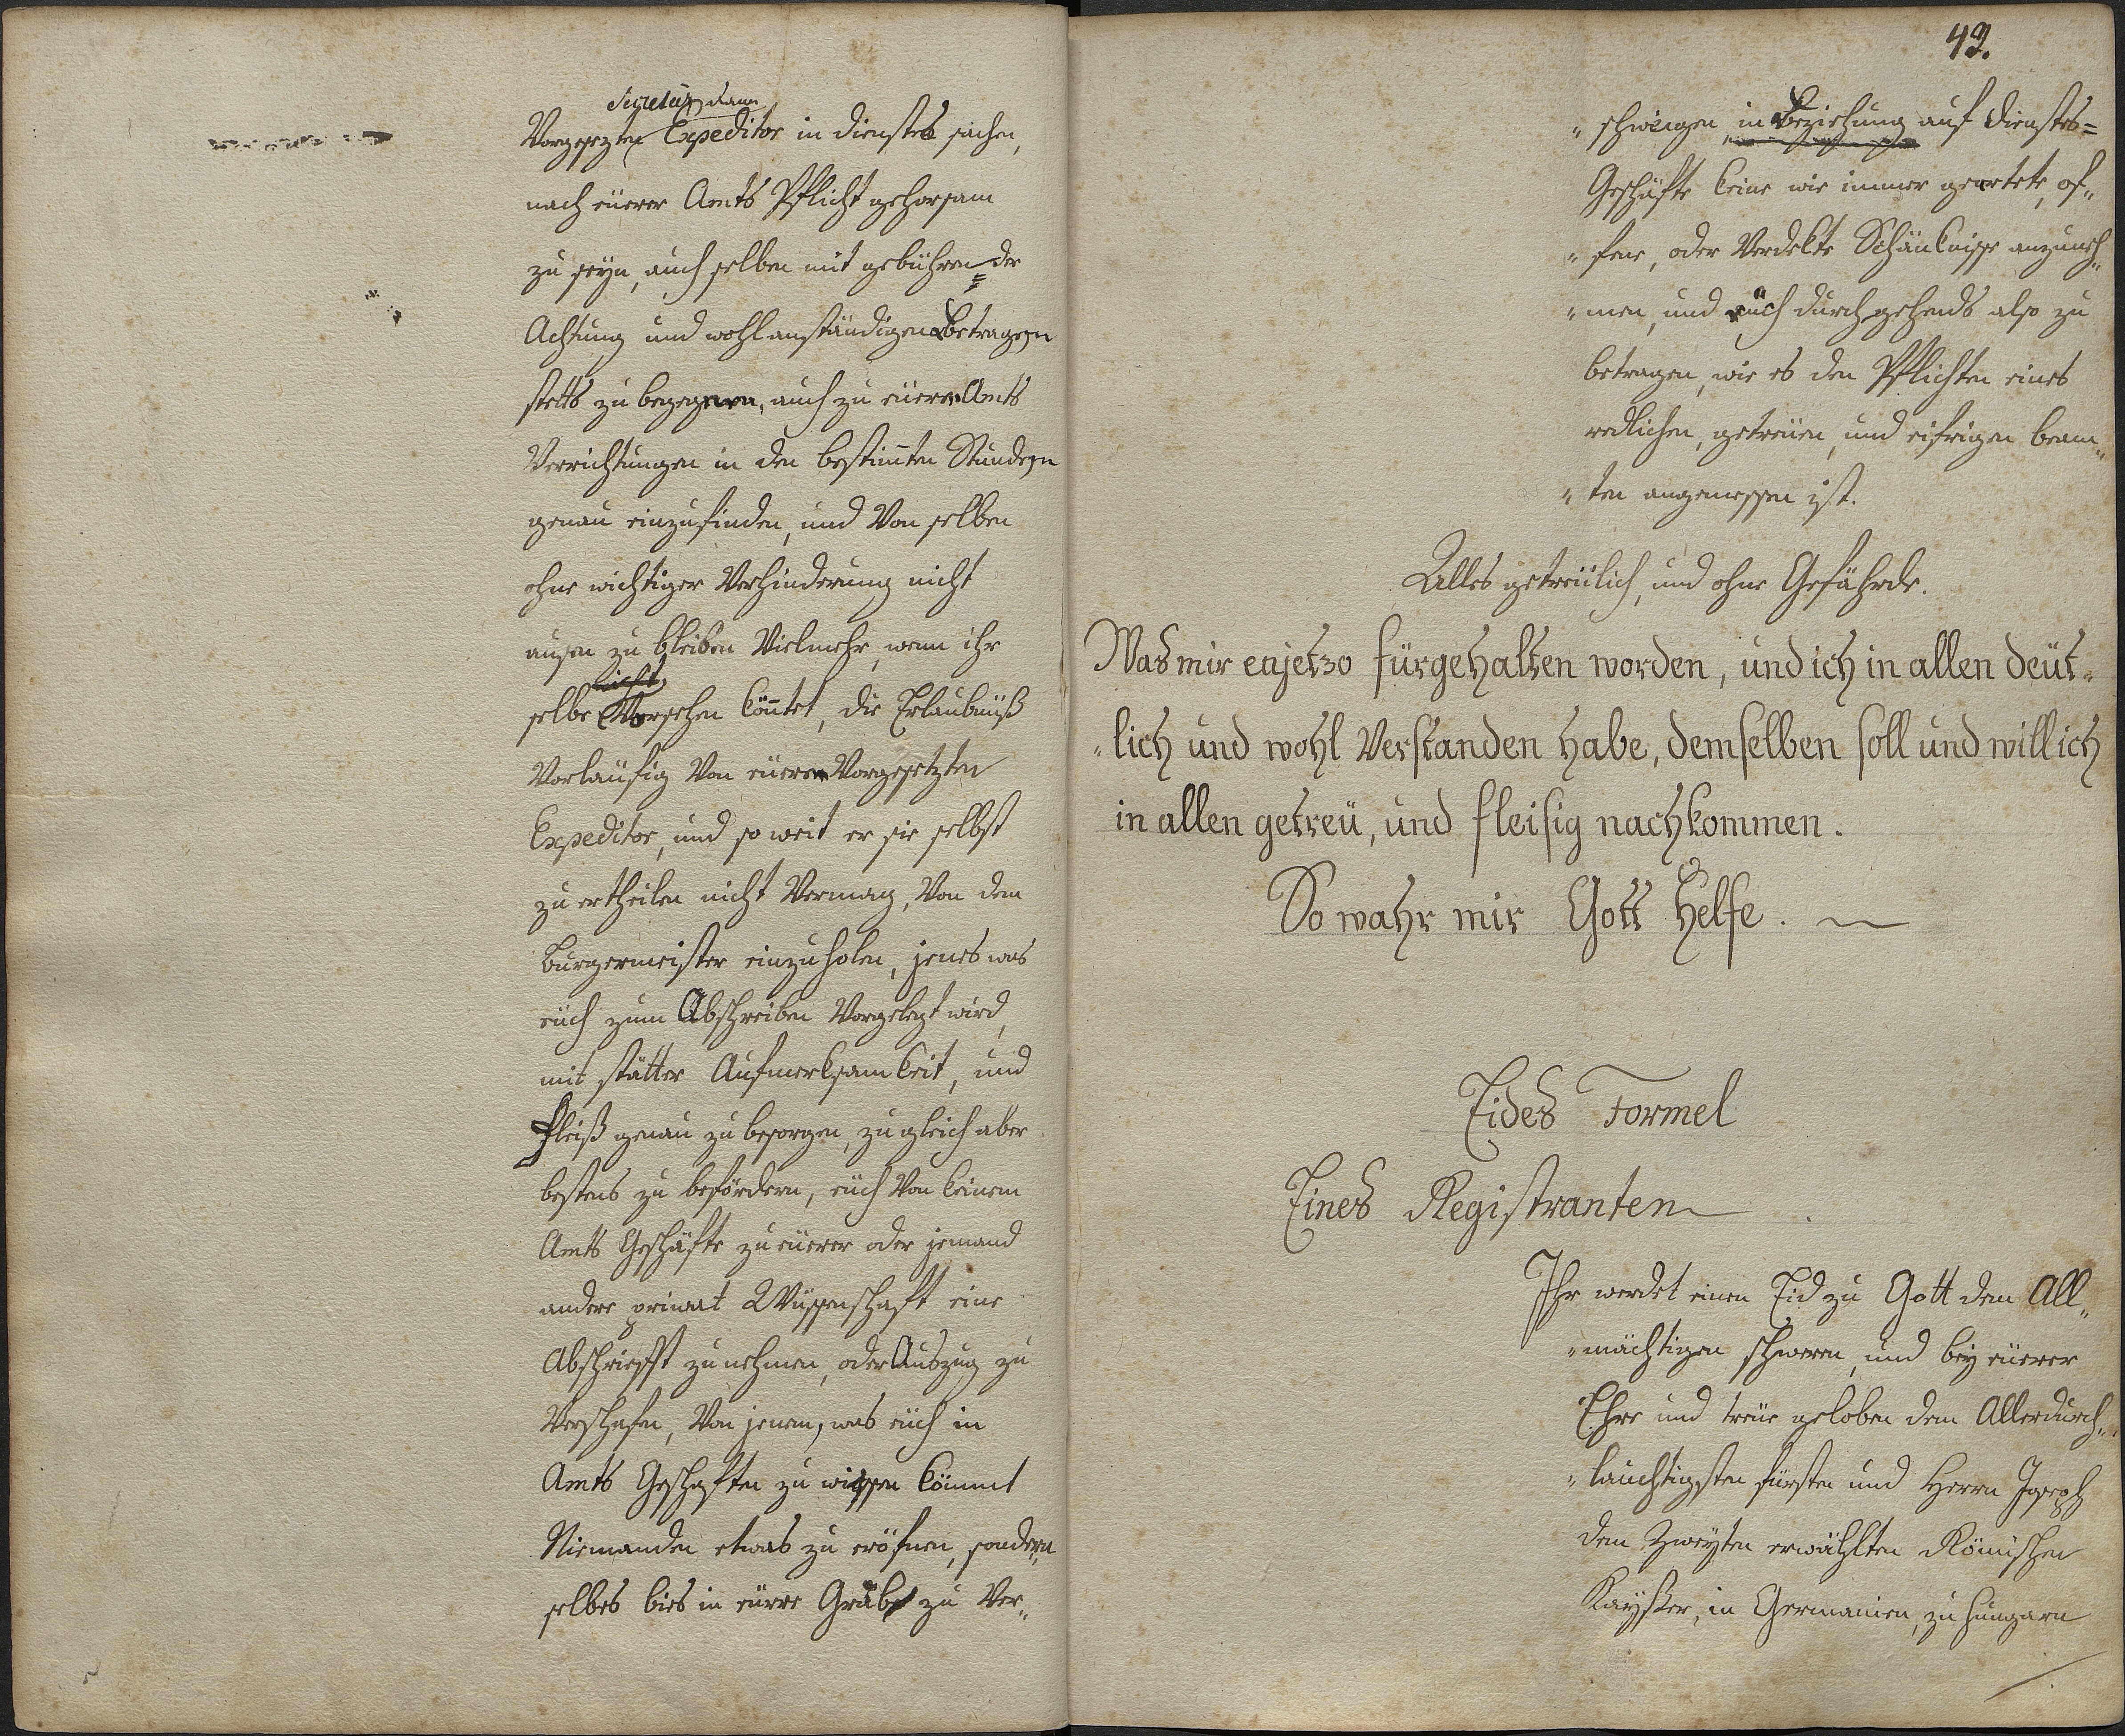 Secretär, dann
Vorgesezten Expeditor in dienstes sachen,
nach eüerer Amts Pflicht gehorsam
zu seyn, auch selben mit gebühren=der
Achtung und wohlanständigen Betragen
stetts zu begegnen, auch zu eüeren Amts
Verrichtungen in den bestim̄ten Stunden
genau einzufinden, und Von selben
ohne wichtiger Verhinderung nicht
ausen zu bleiben Vielmehr, wenn ihr
nicht
selbe Vorsehen kön̄tet, die Erlaubnüß
Vorlaüfig Von eüeren Vorgesetzten
Expeditor, und so weit er sie selbst
zu ertheilen nicht Vermag, Von dem
Burgermeister einzuholen, jenes was
eüch zum Abschreiben Vorgelegt wird,
mit stätter Aufmerksamkeit, und
Fleiß genau zu besorgen, zugleich aber
bestens zu befördern, eüch Von keinem
Amts Geschäfte zu eüerer oder jemand
andere privat Wüssenschaft eine
Abschriefft zu nehmen, oder Auszug zu
Verschafen, Von jenem, was eüch in
Amts Geschäften zu wissen kömmt
Niemanden etwas zu eröfnen, sondern
selbes bies in eüere Grabe zu Ver„
49.
„schweigen in Beziehung auf dienstes=
Geschäfte keine wie immer geartete, of„
„fene, oder Verdekte Schänknisse anzuneh„
„men, und eüch durchgehends also zu
betragen, wie es den Pflichten eines
redlichen, getreüen, und eifrigen beam„
„ten angemessen ist.
Alles getreülich, und ohne Gefährde.
Was mir enjetzo fürgehalten worden, und ich in allen deüt„
„lich und wohl Verstanden habe, demselben soll und will ich
in allen getreü, und fleisig nachkommen.
So wahr mir Gott Helfe.
Eides Formel
Eines Registranten
Ihr werdet einen Eid zu Gott dem All„
„mächtigen schweren, und bey eüerer
Ehre und treüe geloben dem Allerdurch„
„lauchtigsten fürsten und Herrn Joseph
dem Zweyten erwählten Römischen
Kaysser, in Germanien, zu Hungarn